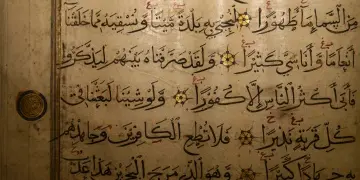 مِنَ السَّمَاءِ مَاءً طَهُورًا لِنُحْيِيَ بِهِ بَلْدَةً مَيْتًا وَنُسْقِيَهُ مِمَّا خَلَقْنَا
أَنْعَامًا وَأَنَاسِيَّ كَثِيرًا وَلَقَدْ صَرَّفْنَاهُ بَيْنَهُمْ لِيَذَّكَّرُوا
فَأَبَى أَكْثَرُ النَّاسِ إِلَّا كُفُورًا وَلَوْ شِئْنَا لَبَعَثْنَا فِي
كُلِّ قَرْيَةٍ نَذِيرًا فَلَا تُطِعِ الْكَافِرِينَ وَجَاهِدْهُمْ
بِهِ جِهَادًا كَبِيرًا وَهُوَ الَّذِي مَرَجَ الْبَحْرَيْنِ هَذَا عَذْبٌ